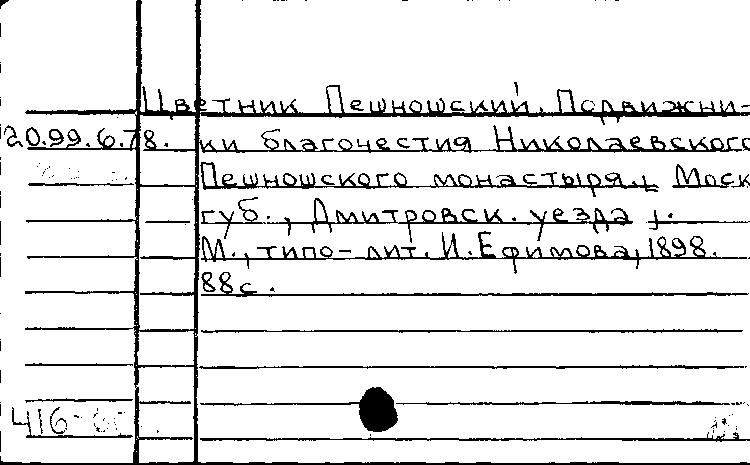 Цветник Пешношский. Подвижни-
20.99.6.78. ки благочестия Николаевского
Пешношского монастыря [Моск
губ., Дмитровск. уезда].
М., типо-лит. И. Ефимова, 1898.
88с.
416-